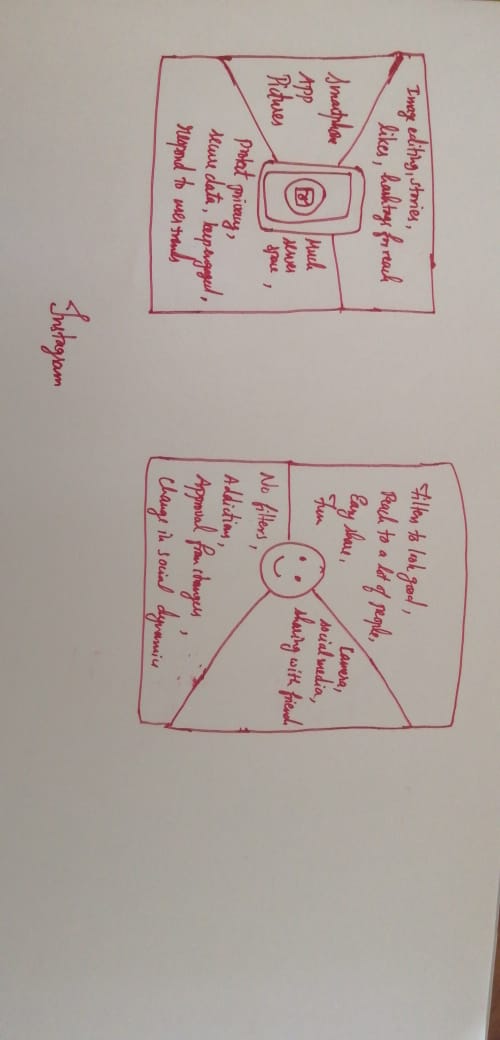 Image editing, stories,
likes, hashtags for reach
Smartphone
App
Pictures
Much
server
space,
Protect privacy,
secure data, keep engaged,
respond to user trends
Filters to look good,
Reach to a lot of people,
Easy share,
Fun
Camera,
social media,
sharing with friend.
No filters,
Addiction,
Approval from strangers,
Change in social dynamics
Instagram